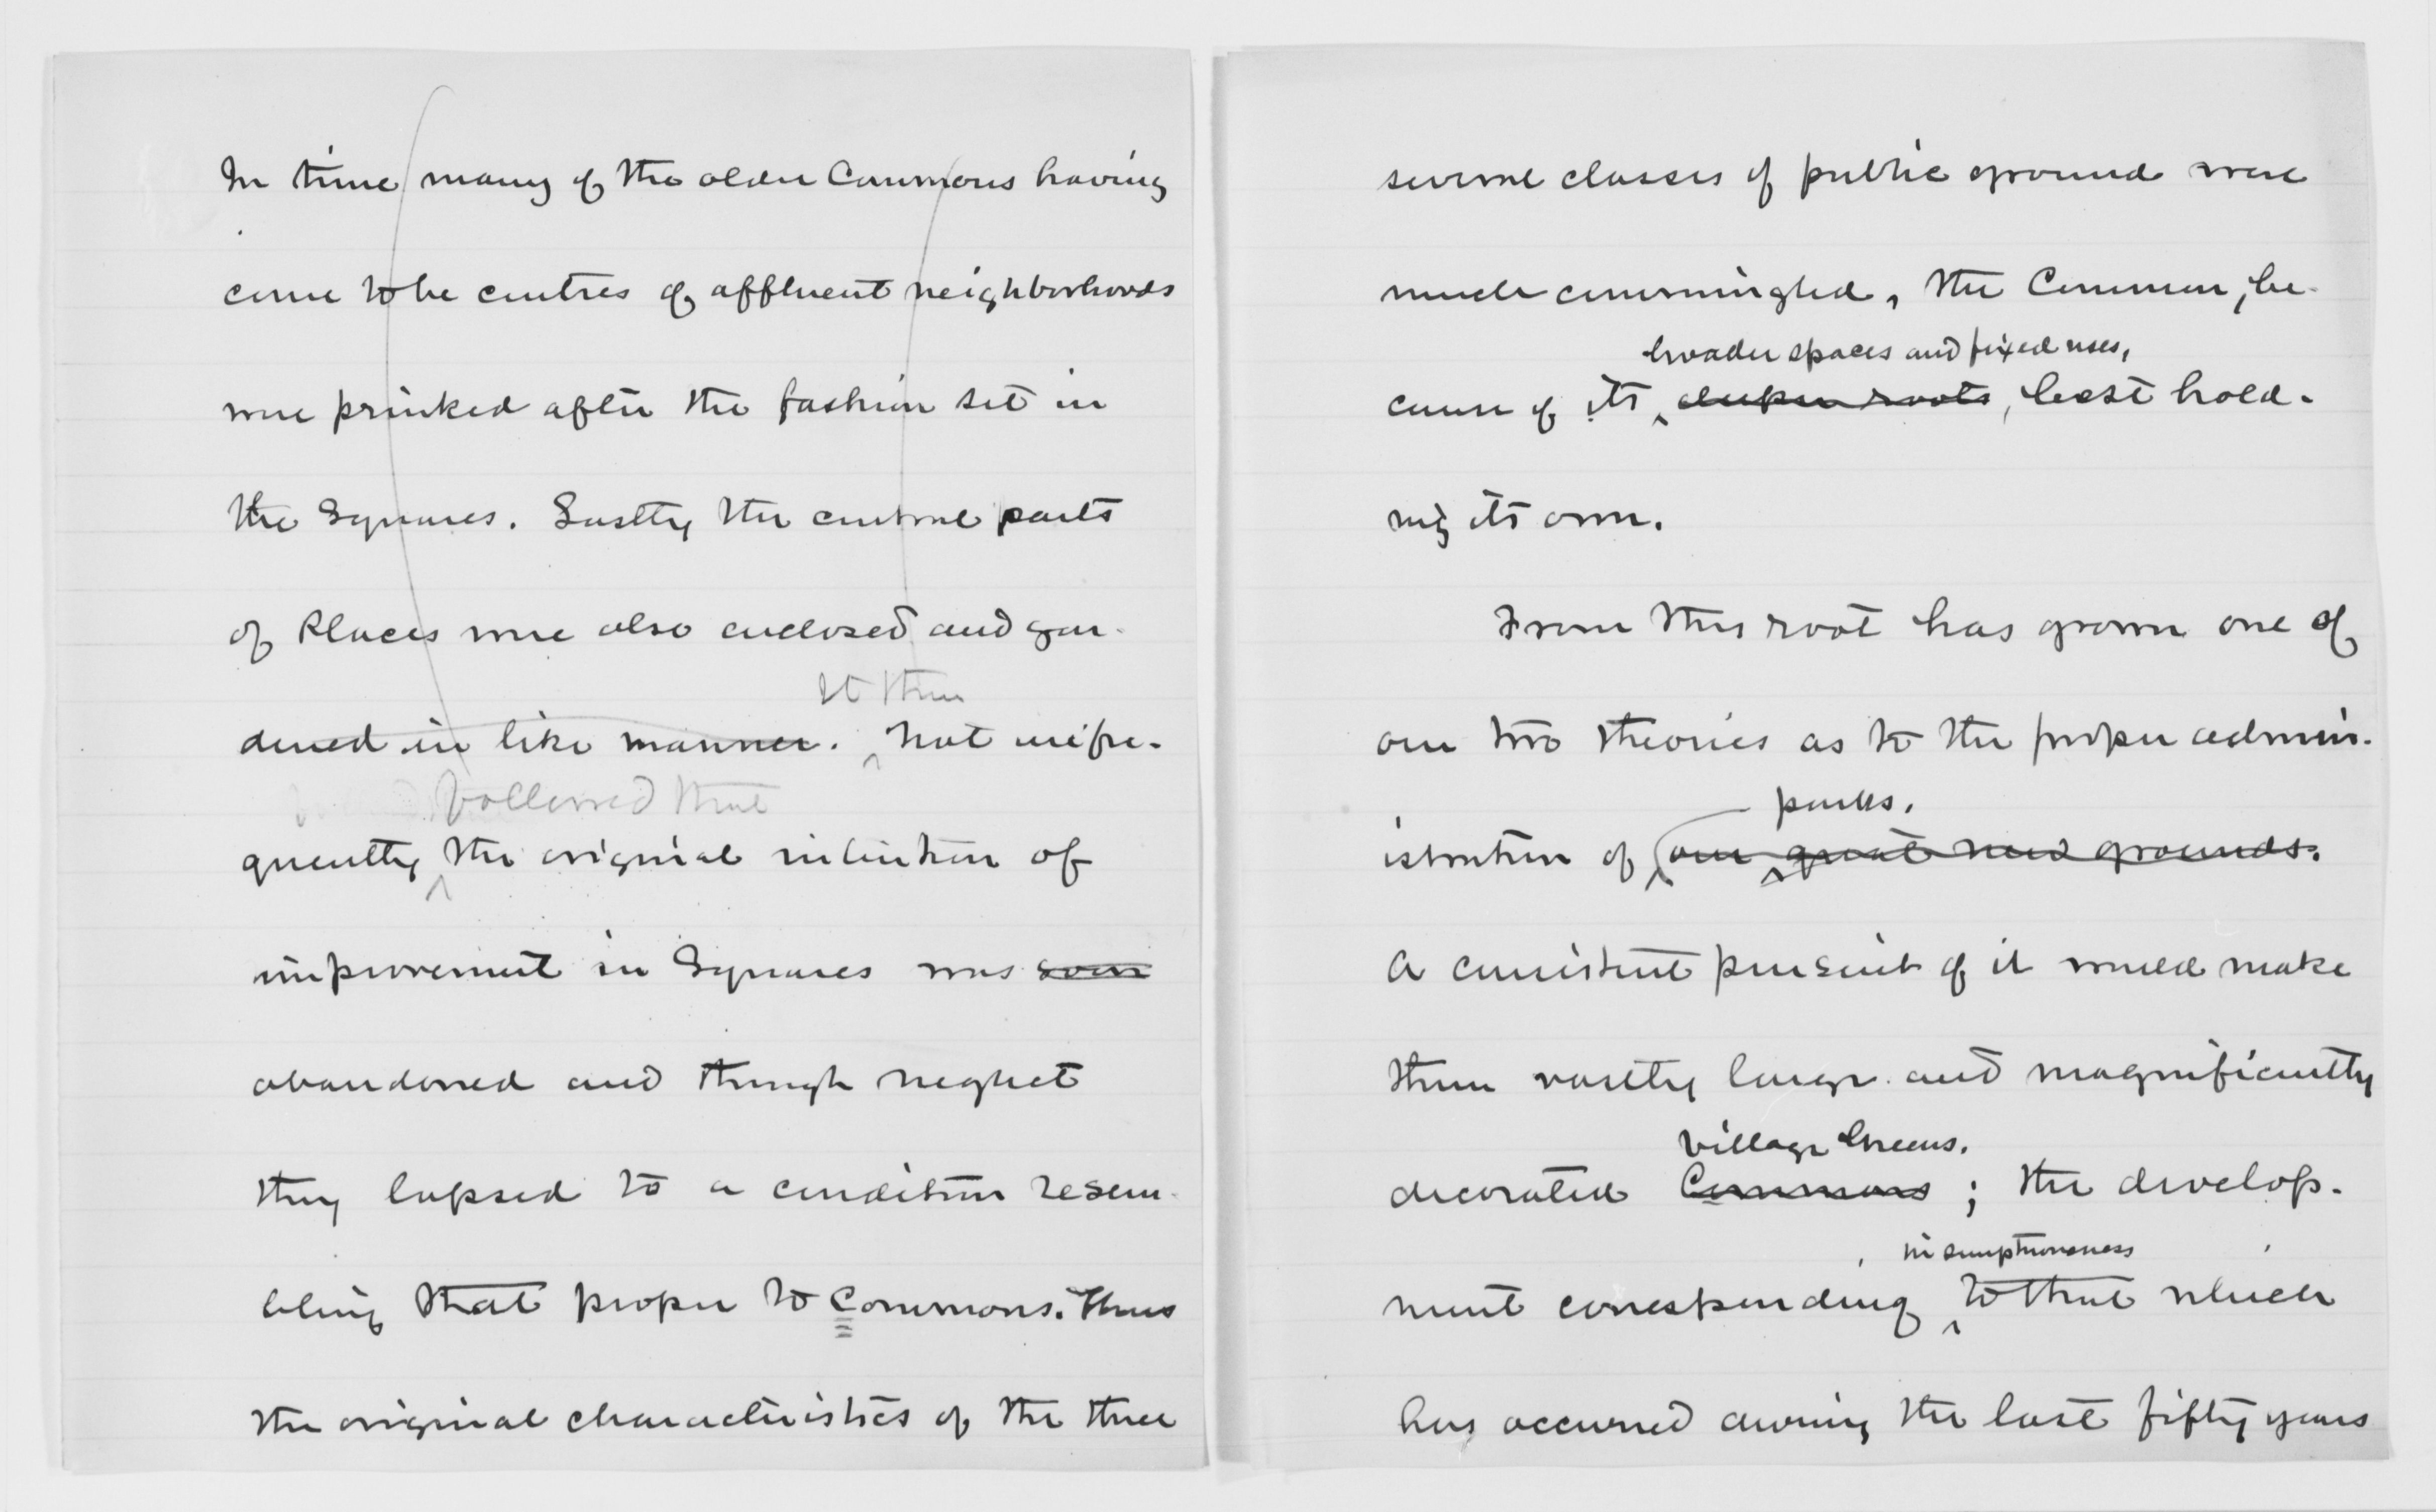 In time many of the older Commons having
come to be centres of affluent neighborhoods
were prinked after the fashion set in
the Squares. Lastly the central parts
of Places were also enclosed and gar-
It then
dened in like manner. Not infre-
followed that
quently the original intention of
improvement in Squares was soon
abandoned and through neglect
they lapsed to a condition resem-
bling that proper to Commons. Thus
the original characteristics of the three
several classes of public ground were
much commingled, the Common, be-
broader spaces and fixed uses,
cause of its deeper roots, best hold-
ing its own.
From this root has grown one of
our two theories as to the proper admin-
parks.
istration of our great new grounds.
A consistent pursuit of it would make
them vastly large and magnificently
Village Greens.
decorated Commons ; the develop-
in sumptuousness
ment corresponding to that which
has occurred during the last fifty years